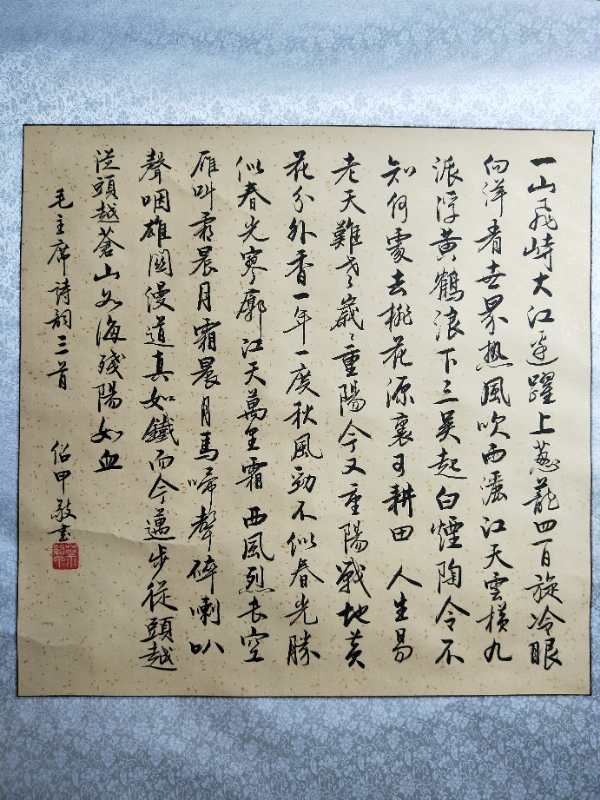 一山飛峙大江邊躍上葱蘢四百旋冷眼
向洋看世界熱風吹雨灑江天雲橫九
派浮黃鶴浪下三吳起白煙陶令不
知何處去桃花源裏可耕田 人生易
老天難老歲歲重陽今又重陽戰地黃
花分外香一年一度秋風勁不似春光勝
似春光寥廓江天萬里霜 西風烈長空
雁叫霜晨月霜晨月馬啼聲碎喇叭
聲咽雄關漫道真如鐵而今邁步從頭越
從頭越蒼山如海殘陽如血
毛主席詩詞三首 紹甲敬書